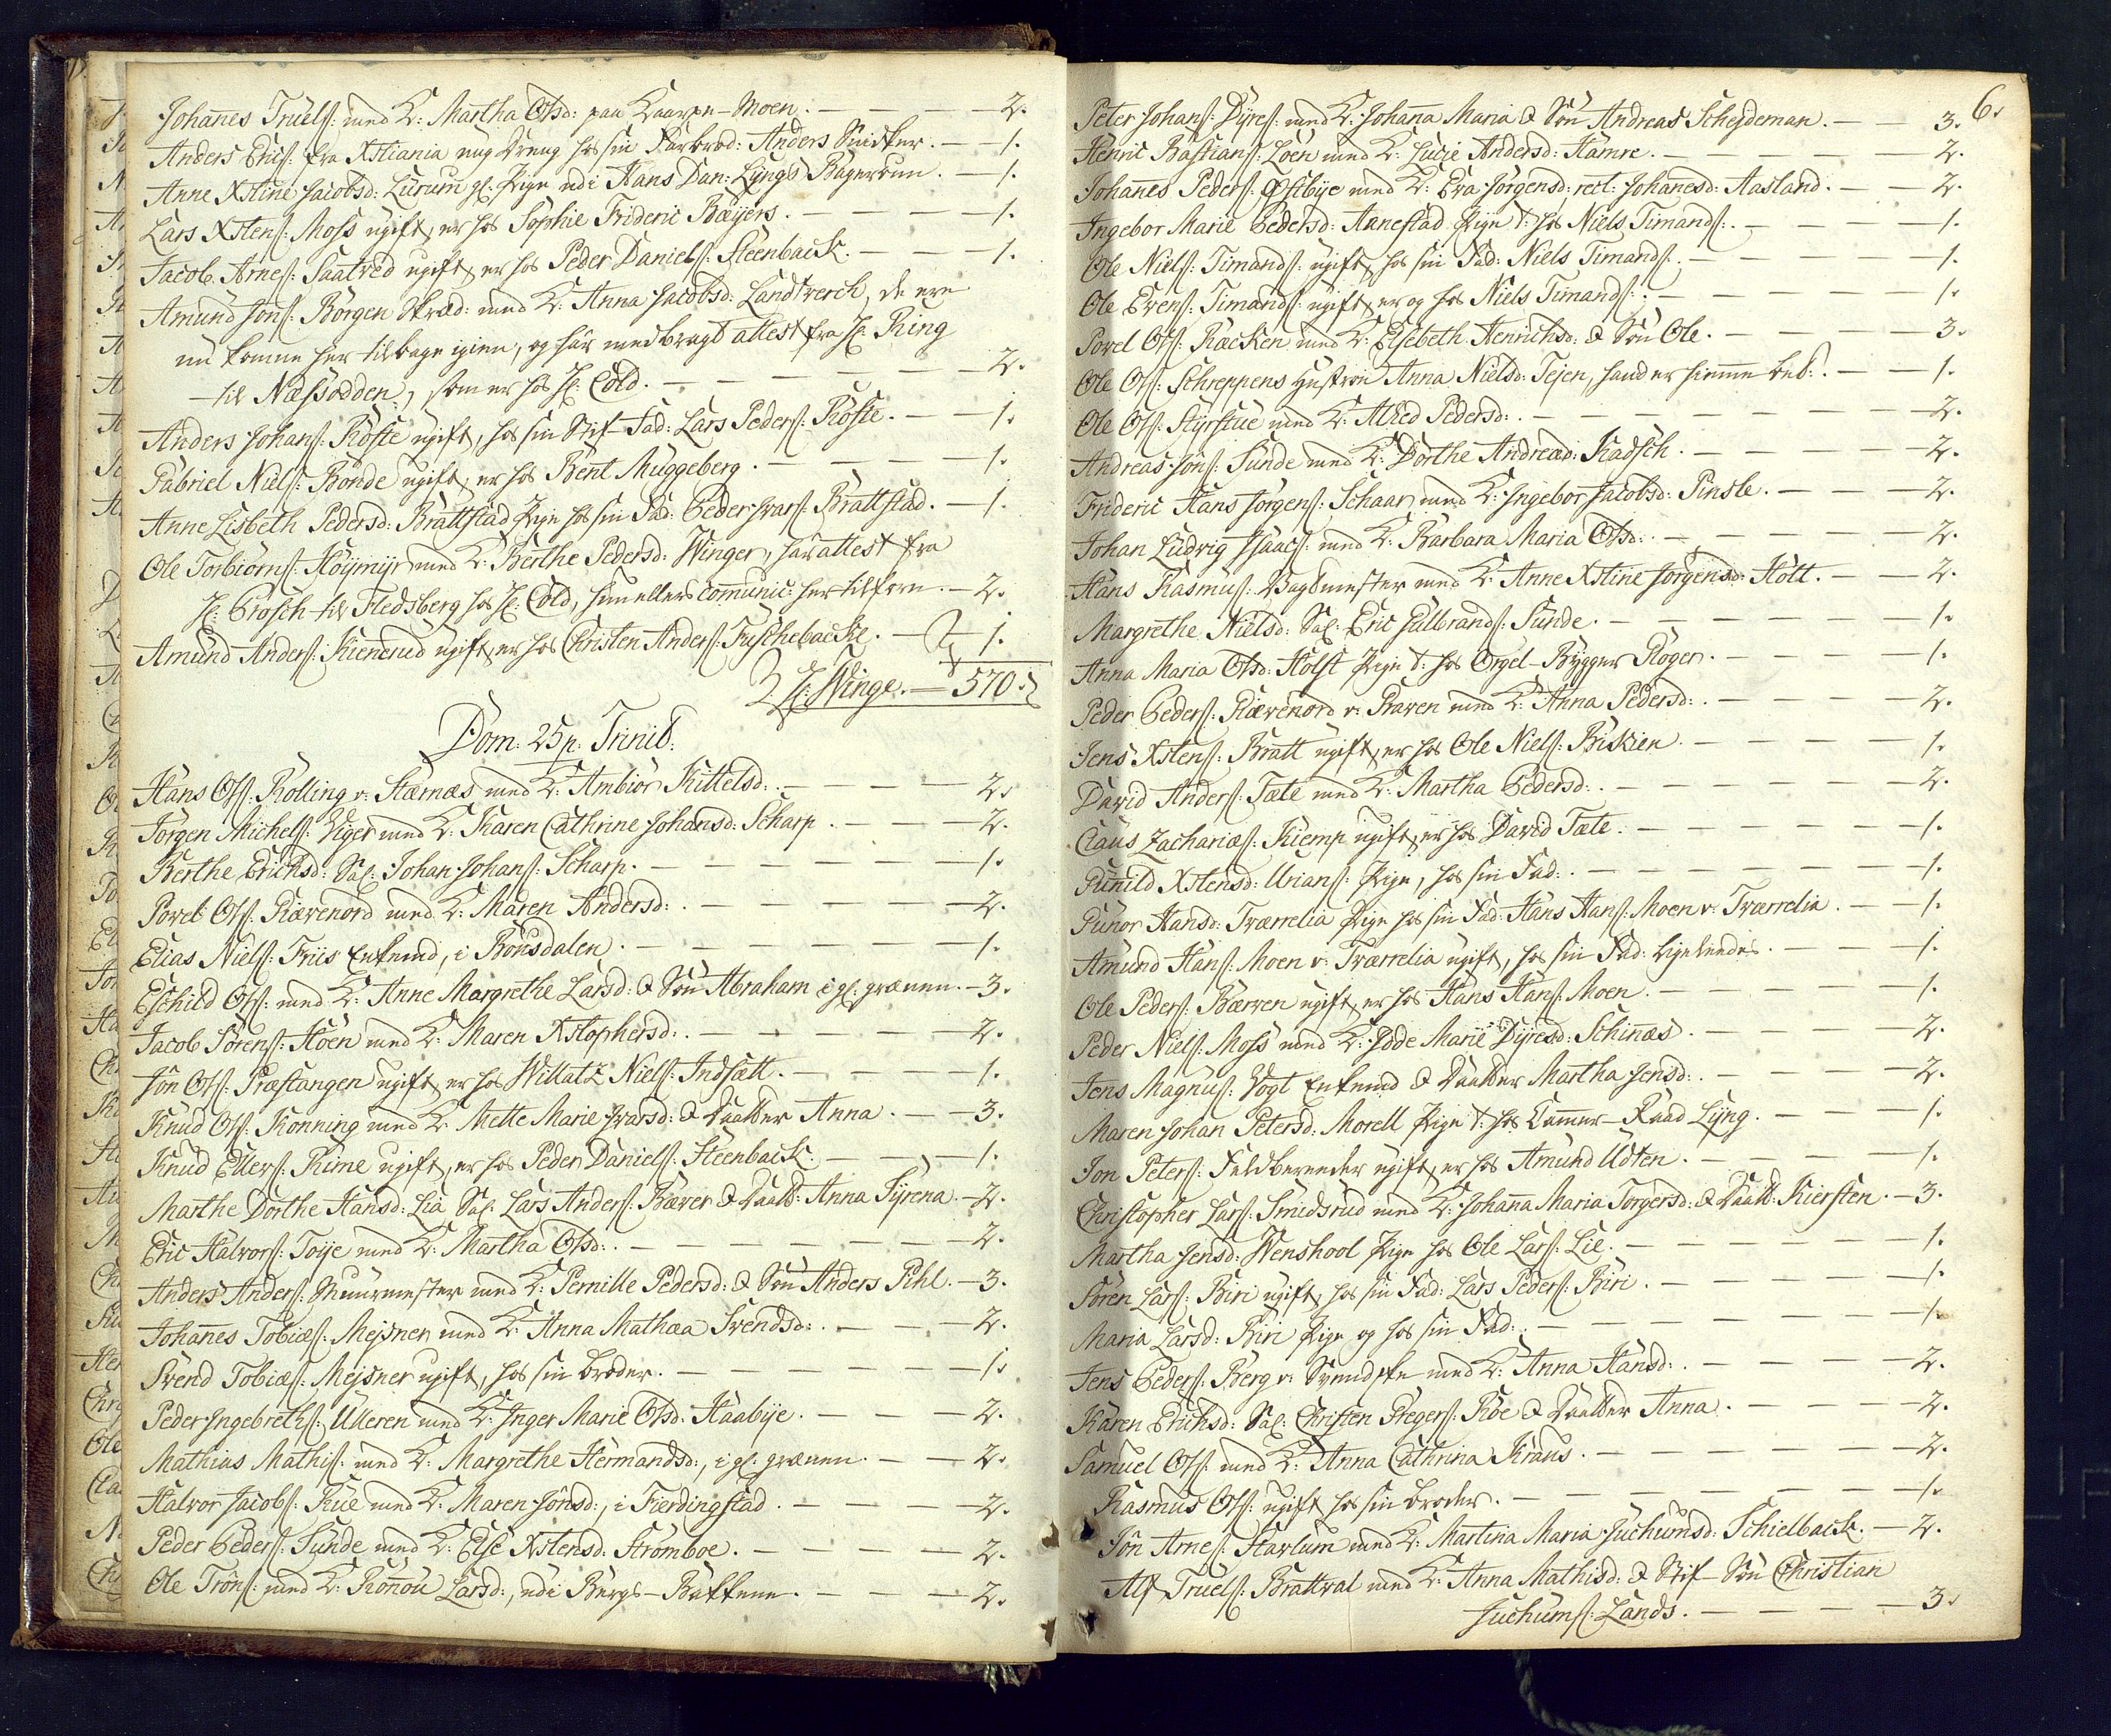 Johan̄es Truels: med K: Martha Olsd: paa Kaarpe-Moen. — 2.
Anders Erics: fra Xstiania ung Dreng hos sin Farbrod: Anders Snidker. — 1.
Anne Xstine Jacobsd: Lurum gl. Pige udi Hans Dan: Lyngs Bagerbun. — 1.
Lars Xstens: Moss ugift, er hos Sophie Frideric Bæÿers. — 1.
Jacob Arnes: Saatved ugift, er hos Peder Daniels: Steenback. — 1.
Amund Jons: Börgen Skræd: med K: Anna Jacobsd: Landtverch, de ere
nu komne her tilbage igien, og har medbragt attest fra Hr: Ring
til Næssodden, som er hos Hr: Cold. — 2.
Anders Johans: Röste ugift, hos sin Stif-Fad: Lars Peders: Röste. — 1.
Gabriel Niels: Bonde ugift, er hos Bent Muggeberg. — 1.
Anne Lisbeth Pedersd: Brattstad Pige hos sin Fad: Peder Ivars: Brattstad. — 1.
Ole Torbiörns: Höymyr med K: Berthe Pedersd: Winger, har attest fra
Hr: Crosch til Fledsberg hos Hr: Cold, hun ellers com̄unic: her tilforn. — 2.
Amund Anders: Kienerud ugift, er hos Christen Anders: Fuschebacke. — 1.
Hr: Winge. — 570.
Dom: 25 p. Trinit:
Hans Ols: Rolling v: Stærnæs med K: Ambior Kittelsd: — 2.
Jörgen Michels: Viger med K: Karen Cathrine Johansd: Scharp. — 2.
Berthe Erichsd: Sal: Johan Johans: Scharp. — 1.
Povel Ols: Grævenord med K: Maren Andersd: — 2.
Elias Niels: Friis Enkemd, i Bönsdalen. — 1.
Eschild Ols: med K: Anne Margrethe Larsd: & Sön Abraham i gl: grænen. — 3.
Jacob Sörens: Höen med K: Maren Xstophersd: — 2.
Jon Ols: Præstangen ugift, er hos Willatz Niels: Indsætt. — 1.
Knud Ols: Konning med K: Mette Marie Ivarsd: & Daatter Anna. — 3.
Knud Ellevs: Rime ugift, er hos Peder Daniels: Steenback. — 1.
Marthe Dorthe Hansd: Lia Sal: Lars Anders: Bæver & Daatt: Anna Syrena. — 2.
Eric Halvors: Toije med K: Martha Olsd: — 2.
Anders Anders: Muurmester med K: Pernille Pedersd: & Sön Anders Pihl. — 3.
Johan̄es Tobiæs: Mejsner med K: Anna Mathæa Svendsd: — 2.
Svend Tobiæs: Mejsner ugift, hos sin broder. — 1.
Peder Ingebreths: Ulleren med K: Inger Marie Olsd: Haabÿe. — 2.
Mathias Mathis: med K: Margrethe Hermandsd:, i gl: grænen. — 2.
Halvor Jacobs: Rue med K: Maren Jönsd:, i Fierdingstad. — 2.
Peder Peders: Sunde med K: Else Xstensd: Strömboe. — 2.
Ole Trons: med K: Ron̄ou Larsd:, udi Burgs-Bakkene. — 2.
6.
Peter Johans: Dyres: med K: Johan̄a Maria & Sön Andreas Schejdeman. — 3.
Henric Bastians: Loen med K: Lucie Andersd: Hamre. — 2.
Johan̄es Peders: Østbÿe med K: Eva Jörgensd: rect: Johanesd: Aasland. — 2.
Ingebor Marie Pedersd: Annestad Pige t: hos Niels Timands: — 1.
Ole Niels: Timands: ugift, hos sin Fad: Niels Timands: — 1.
Ole Evens: Timands: ugift, er og hos Niels Timands: — 1.
Povel Ols: Racken med K: Elsebeth Henrichsd: & Sön Ole. — 3.
Ole Ols: Schreppens Hustroe Anna Nielsd: Tejen, hand er hiemme bet: — 1.
Ole Ols: Styrstue med K: Alhed Pedersd: — 2.
Andreas Jöns: Sunde med K: Dorthe Andreæd: Kadsch. — 2.
Frideric Hans Jörgens: Schaar med K: Ingebor Jacobsd: Pinsle. — 2.
Johan Ludvig Isaacs: med K: Barbara Maria Olsd: — 2.
Hans Rasmus: Vagtmester med K: Anne Xstine Jörgensd: Holt. — 2.
Margrethe Nielsd: Sal: Eric Gulbrands: Sunde. — 1.
Anna Maria Olsd: Holst Pige t: hos Orgel-Bygger Roger. — 1.
Peder Peders: Grævenord v: Graven med K: Anna Pedersd: — 2.
Jens Xstens: Bratt ugift, er hos Ole Niels: Briskien. — 1.
David Anders: Tæte med K: Martha Pedersd: — 2.
Claus Zachariæs: Kiemp ugift, er hos David Tæte. — 1.
Gunild Xstensd: Urians: Pige, hos sin Fad: — 1.
Gunor Hansd: Tværrelia Pige hos sin Fad: Hans Hans: Moen v: Tværrelia. — 1.
Amund Hans: Moen v: Tværrelia ugift, hos sin Fad: ligeleedes. — 1.
Ole Peders: Bærven ugift, er hos Hans Hans: Moen. — 1.
Peder Niels: Moss med K: Idde Marie Dyresd: Schinæs. — 2.
Jens Magnus: Vogt Enkemd & Daatter Martha Jensd: — 2.
Maren Johan Petersd: Morell Pige t: hos Cammer-Raad Lyng. — 1.
Jon Peters: Feldbereeder ugift, er hos Amund Udten. — 1.
Christopher Lars: Smidsrud med K: Johan̄a Maria Torgersd: & Daatt: Kiersten. — 3.
Martha Jensd: Wenshool Pige hos Ole Lars: Lie. — 1.
Sören Lars: Biri ugift, hos sin Fad: Lars Peders: Biri. — 1.
Maria Larsd: Biri Pige og hos sin Fad: — 1.
Jens Peders: Berg v: Svendske med K: Anna Hansd: — 2.
Karen Erichsd: Sal: Christen Gregers: Röe & Daatter Anna. — 2.
Samuel Ols: med K: Anna Cathrina Kraus. — 2.
Rasmus Ols: ugift hos sin broder. — 1.
Jön Arnes: Harlum med K: Martina Maria Juchumsd: Schielback. — 2.
Alf Truels: Brattval med K: Anna Mathisd: & Stif-Sön Christian
Juchums: Lands. — 3.